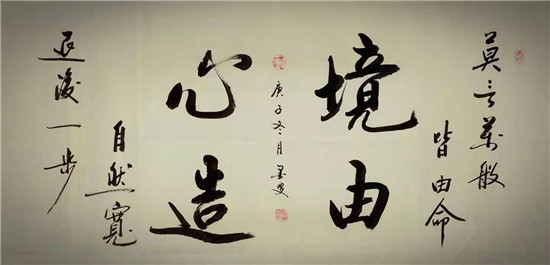 莫言萬般
皆由命
境由
庚子冬月墨叟
心造
自然寬
退後一步